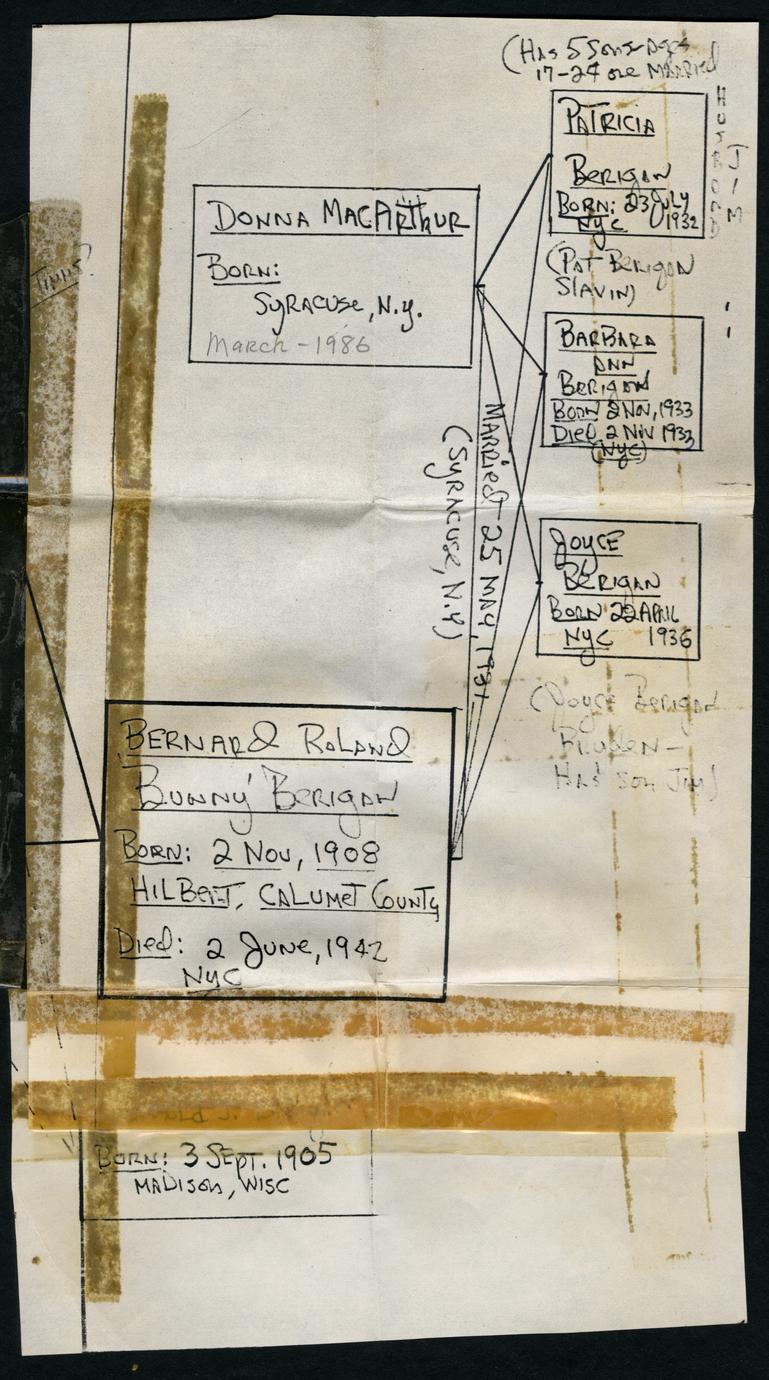 (Has 5 Sons-Ages
17-24 one Married
Patricia
Berigan
Born: 23 July
NYC 1932
Husband
Jim
(Pat Berigan
Slavin)
Donna MacArthur
Born:
Syracuse, N.Y.
March - 1986
Barbara
Ann
Berigan
Born 2 Nov, 1933
Died 2 Nov 1933
(NYC)
Married - 25 May, 1931
(Syracuse, N.Y)
Joyce
Berigan
Born 22 April
NYC 1936
(Joyce Berigan
Has son Jim)
Bernard Roland
'Bunny' Berigan
Born: 2 Nov, 1908
Hilbert, Calumet County
Died: 2 June, 1942
NYC
Born: 3 Sept. 1905
Madison, Wisc